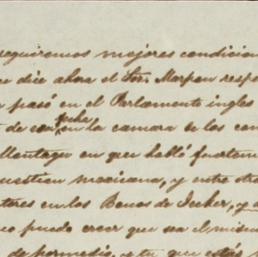 seguiremos mejores condicion
dice ahora el Sor. Marpon resp
pasó en el Parlamento ingles
de fecha en la camara de los con
Montagu en que habló fuertem
cuestion mexicana, y entre otr
tores en los Bonos de Jecker, y
co puedo creer que sea el mism
de por medio, y tu que estás